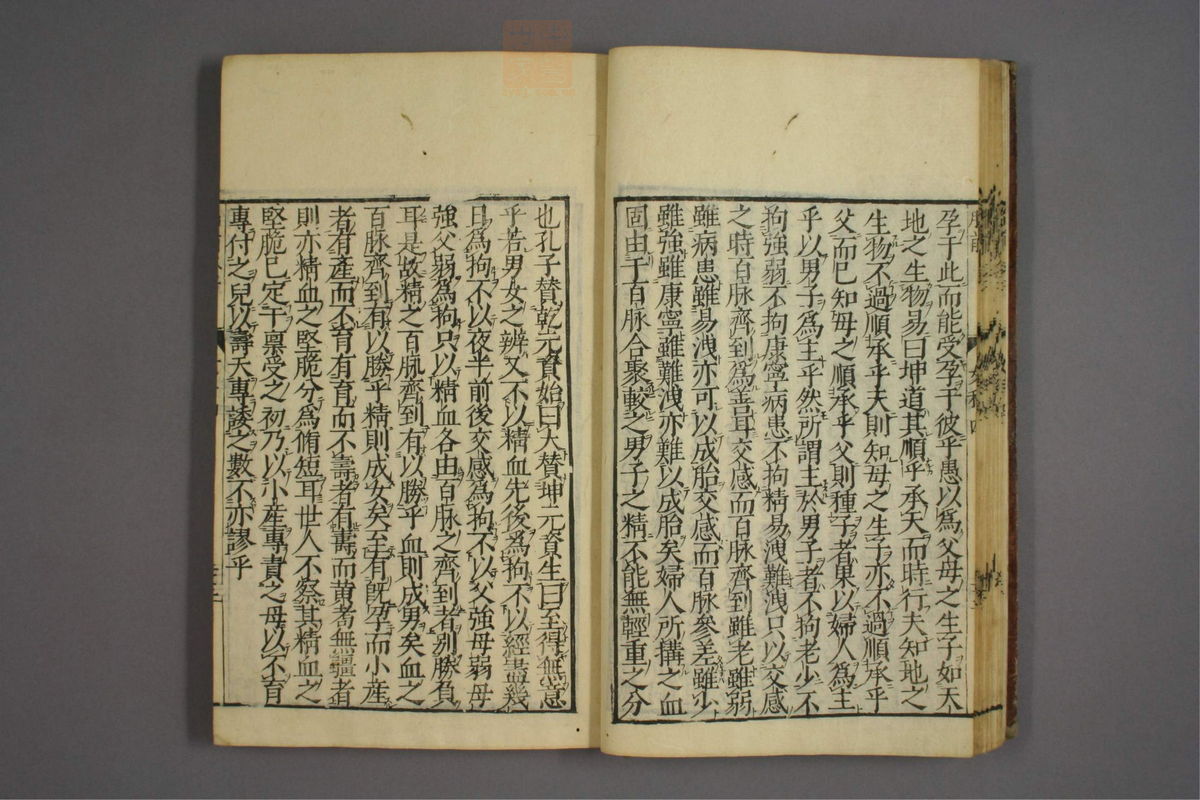 孕于此而能受孕于彼乎愚以爲父母之生子如天
地之生物易曰坤道其順乎承天而時行夫知地之
生物不過順承乎天則知母之生子亦不過順承乎
父而已知母之順承乎父則種子者果以婦人爲主
乎以男子爲主乎然所謂主於男子者不拘老少不
拘強弱不拘康寧病患不拘精易洩難洩只以交感
之時百脉齊到爲善耳交感而百脉齊到雖老雖弱
雖病患雖易洩亦可以成胎交感而百脉參差雖少
雖強雖康寧雖難洩亦難以成胎矣婦人所搆之血
固由于百脉合聚較之男子之精不能無輕重之分
也孔子賛乾元資始曰大賛坤元資生曰至得無意
乎若男女之辨又不以精血先後爲拘不以經盡幾
日爲拘不以夜半前後交感爲拘不以父強母弱母
強父弱爲拘只以精血各由百脉之齊到者别勝負
耳是故精之百脉齊到有以勝乎血則成男矣血之
百脉齊到有以勝乎精則成女矣至有既孕而小産
者有産而不育有育而不壽者有壽而黄耉無疆者
則亦精血之堅脆分爲脩短耳世人不察其精血之
堅脆已定于禀受之初乃以小産專責之母以不育
專付之兒以壽夭專諉之數不亦謬乎